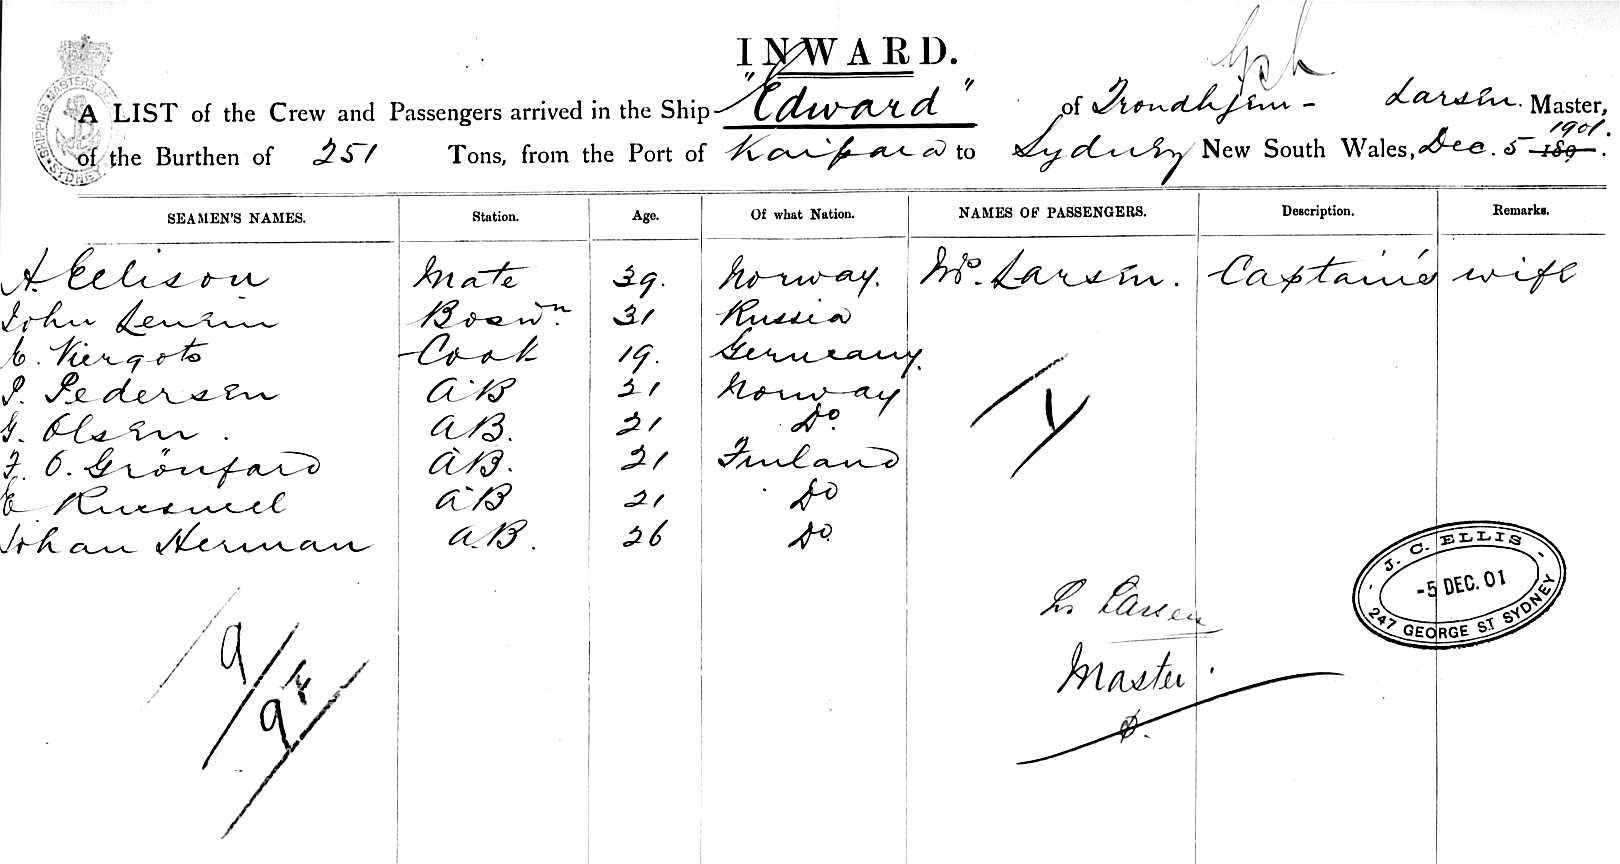 INWARD.
A LIST of the Crew and Passengers arrived in the Ship "Edward" of Trondhjem - Larsen. Master,
of the Burthen of 251 Tons, from the Port of Kaipara to Sydney New South Wales, Dec. 5 189 1901.
SHIPPING MASTER'S SYDNEY
SEAMEN'S NAMES. Station. Age. Of what Nation. NAMES OF PASSENGERS. Description. Remarks.
A. Ellison Mate 39. Norway. Mrs. Larsen. Captain's wife
John Bosw'n. 31 Russia
E. Viergots Cook 19. Germany.
P. Pedersen AB 21 Norway
G. Olsen. AB. 21 Do.
F. O. Grönfard AB. 21 Finland
E. AB 21 Do
Johan Herman A.B. 26 Do.
J. C. ELLIS
-5 DEC. 01
247 GEORGE ST. SYDNEY
Larsen
Master.
9
9